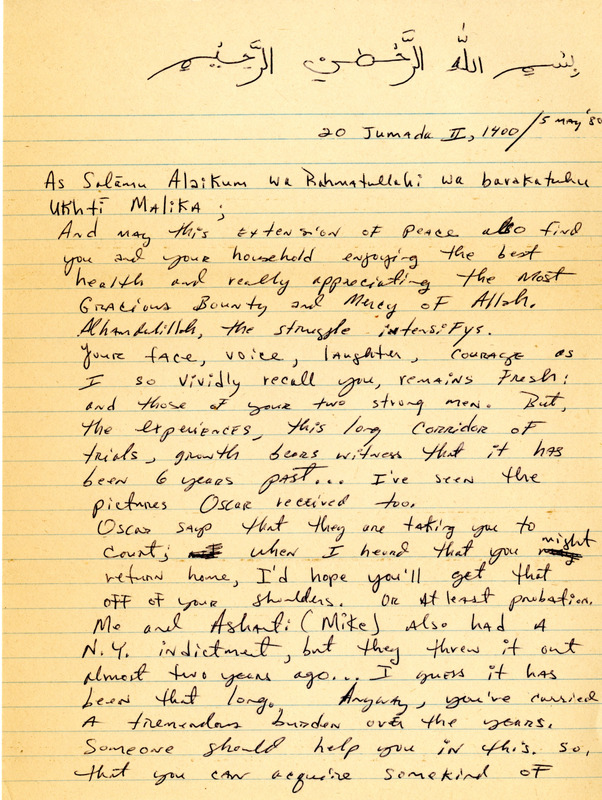 بسم الله الرحمن الرحيم
20 Jumada II, 1400 / 5 May '80
As Salāmu Alaikum wa Rahmatullahi wa barakatuhu
Ukhti Malika;
And may this extension of peace also find
you and your household enjoying the best
health and really appreciating the Most
Gracious Bounty and Mercy of Allah.
Alhamdulillah, the struggle intensifys.
Youre face, voice, laughter, courage as
I so vividly recall you, remains fresh;
and those of your two strong men. But,
the experiences, this long corridor of
trials, growth bears witness that it has
been 6 years past... I've seen the
pictures Oscar received too.
Oscar says that they are taking you to
court; when I heard that you might
return home, I'd hope you'll get that
off of your shoulders. Or at least probation.
Me and Ashanti (Mike) also had a
N.Y. indictment, but they threw it out
almost two years ago... I guess it has
been that long. Anyway, you've carried
a tremendous burden over the years.
Someone should help you in this. So,
that you can acquire somekind of